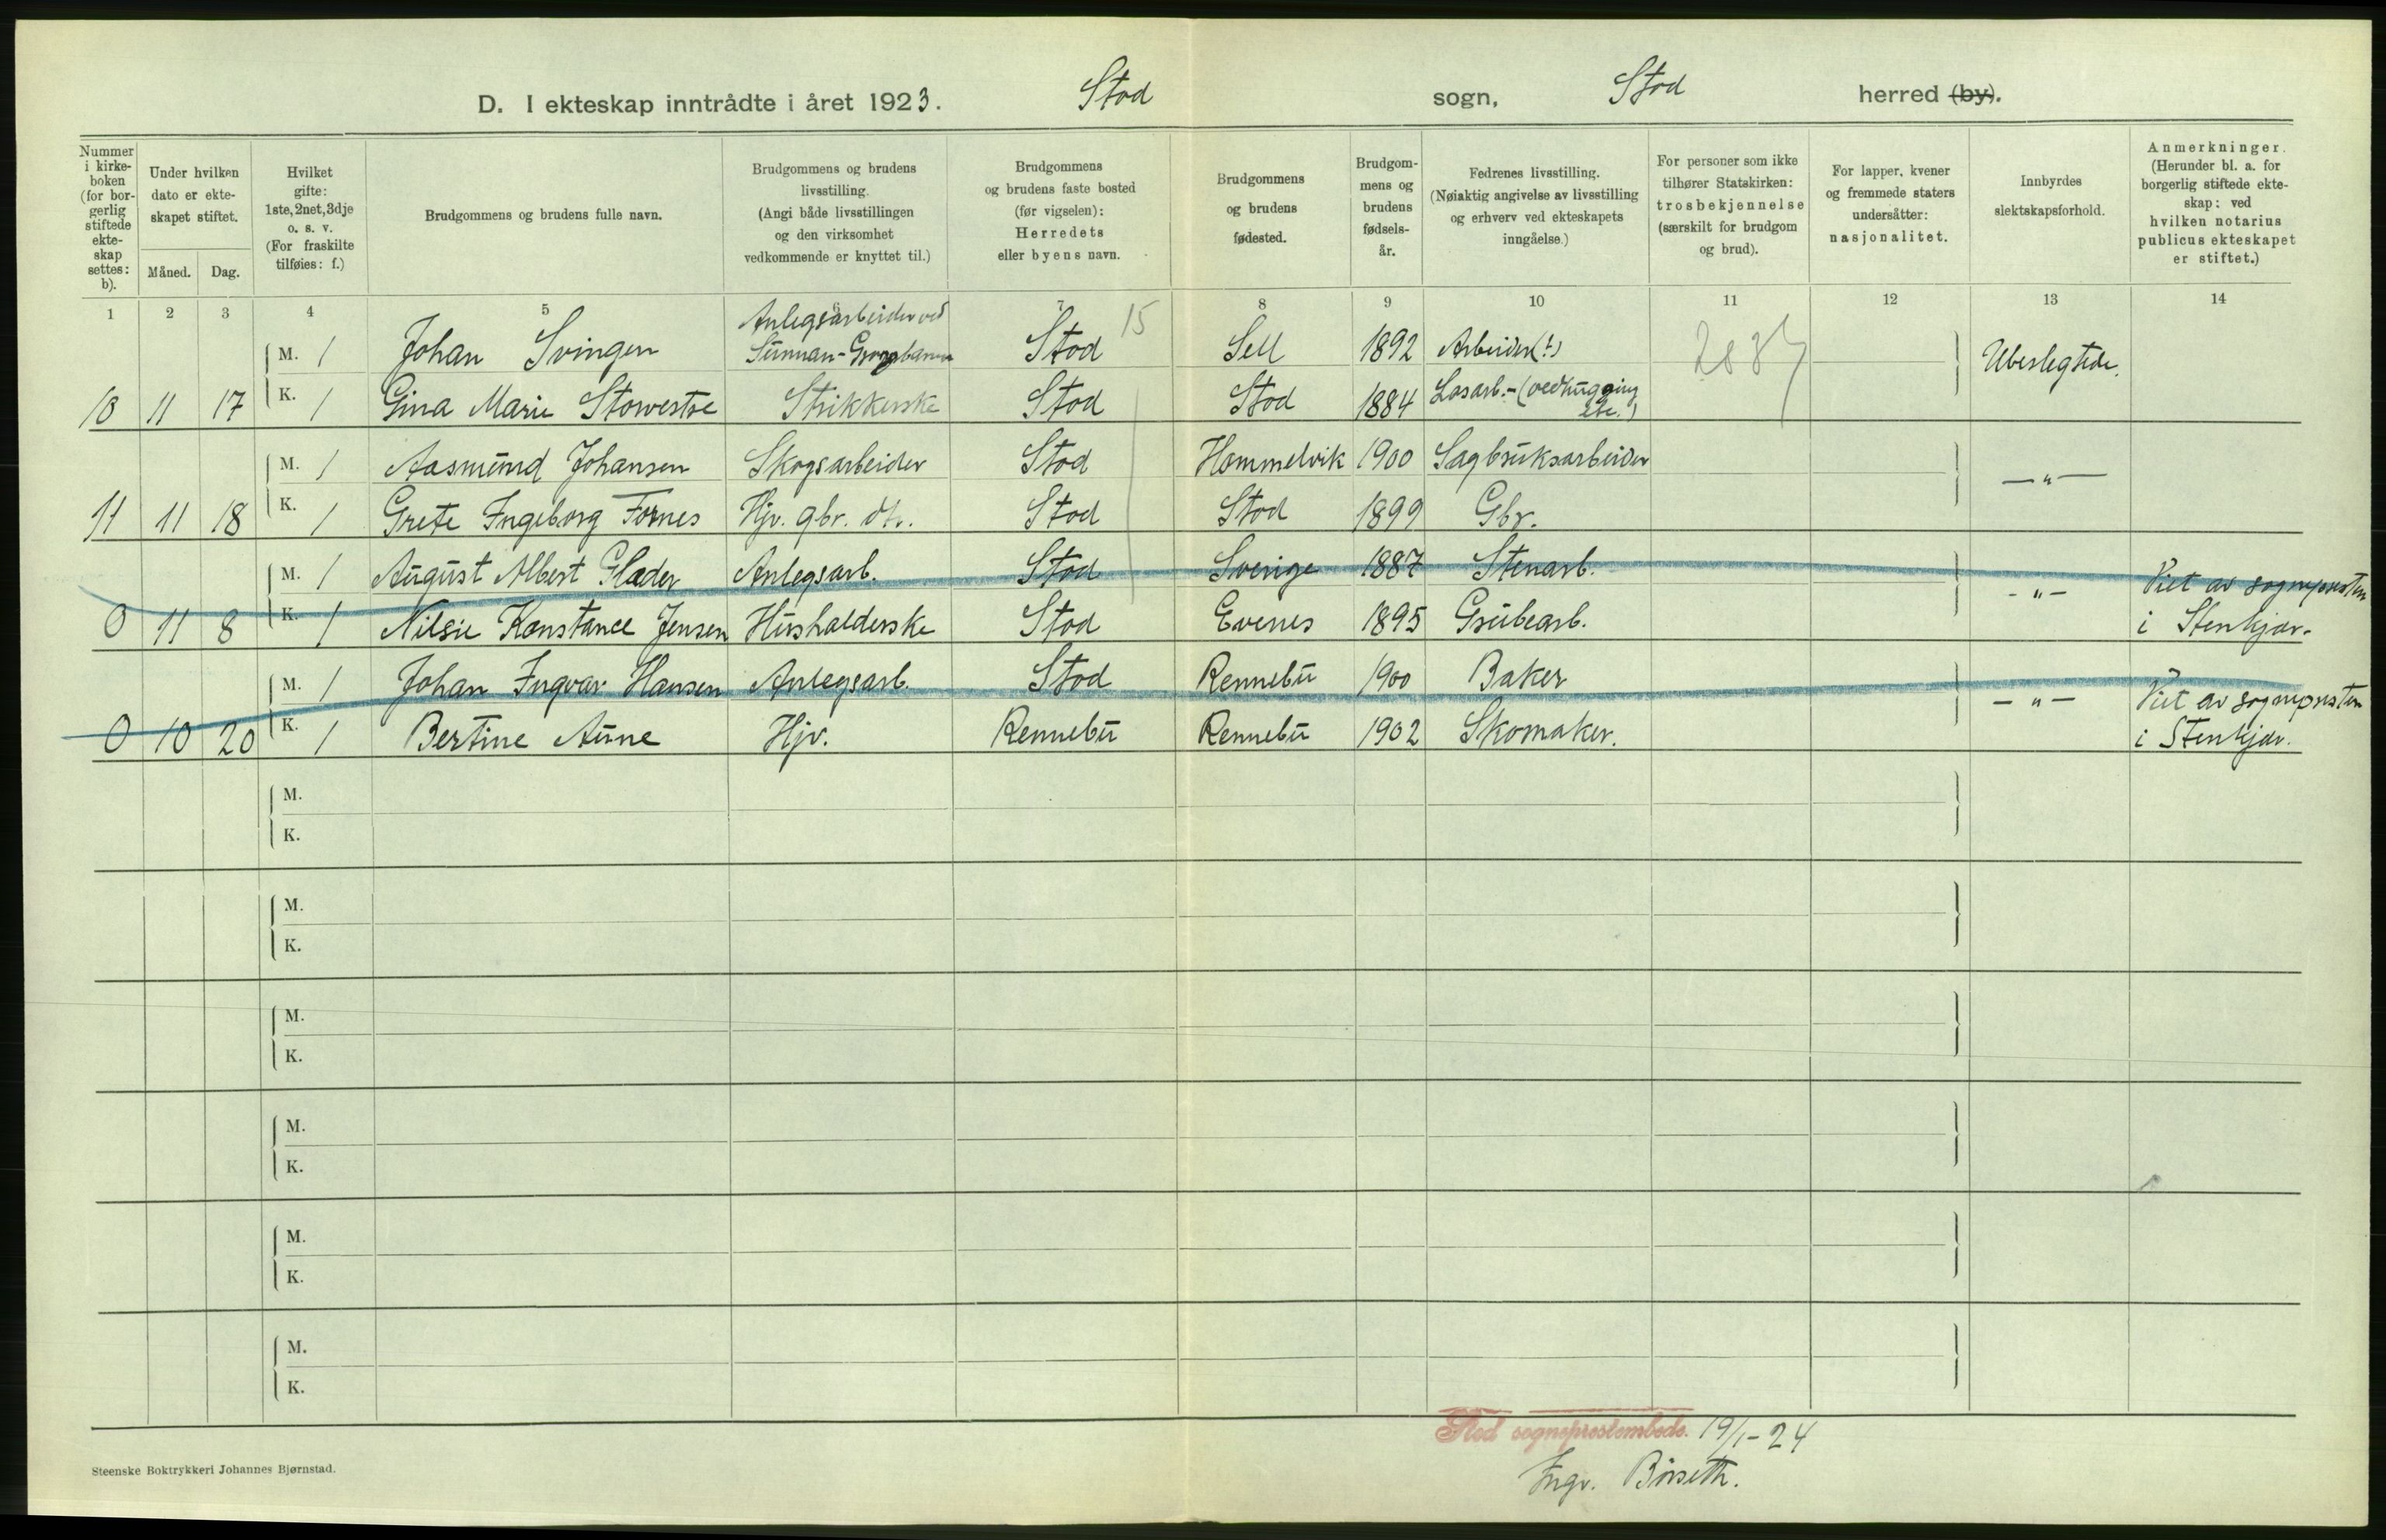 D. I ekteskap inntrådte i året 1923. Stod sogn, Stod herred (by).
Nummer i kirke-boken (for bor-gerlig stiftede ekte-skap settes: b).
Under hvilken dato er ekte-skapet stiftet.
Måned. Dag.
Hvilket gifte: 1ste, 2net, 3dje o. s. v. (For fraskilte tilføies: f.)
Brudgommens og brudens fulle navn.
Brudgommens og brudens livsstilling. (Angi både livsstillingen og den virksomhet vedkommende er knyttet til.)
Brudgommens og brudens faste bosted (før vigselen): Herredets eller byens navn.
Brudgommens og brudens fødested.
Brudgom-mens og brudens fødsels-år.
Fedrenes livsstilling. (Nøiaktig angivelse av livsstilling og erhverv ved ekteskapets inngåelse.)
For personer som ikke tilhører Statskirken: trosbekjennelse (særskilt for brudgom og brud).
For lapper, kvener og fremmede staters undersåtter: nasjonalitet.
Innbyrdes slektskapsforhold.
Anmerkninger. (Herunder bl. a. for borgerlig stiftede ekte-skap: ved hvilken notarius publicus ekteskapet er stiftet.)
1 2 3 4 5 6 7 8 9 10 11 12 13 14
15
M. 1 Johan Svingen Anlegsarbeider ved Sunnan-Grongbanen Stod Sell 1892 Arbeider (?) Ubeslegtede.
10 11 17 K. 1 Gina Marie Stowestre Strikkerske Stod Stod 1884 Løsarb.- (vedhugging etc.)
M. 1 Aasmund Johansen Skogsarbeider Stod Hommelvik 1900 Sagbruksarbeider — " —
11 11 18 K. 1 Grete Ingeborg Fornes Hjv. gbr. dtr. Stod Stod 1899 Gbr.
M. 1 August Albert Glader Anlegsarb. Stod Sverige 1887 Stenarb. - " - Viet av sognepresten
0 11 8 K. 1 Nilsie Konstance Jensen Husholderske Stod Evenes 1895 Grubearb. i Stenkjær.
M. 1 Johan Ingvar Hansen Anlegsarb. Stod Rennebu 1900 Baker - " - Viet av sognepresten
0 10 20 K. 1 Bertine Aune Hjv. Rennebu Rennebu 1902 Skomaker. i Stenkjær.
M.
K.
M.
K.
M.
K.
M.
K.
M.
K.
M.
K.
Stod sogneprestembede. 19/1-24
Ingv. Börseth.
Steenske Boktrykkeri Johannes Bjørnstad.